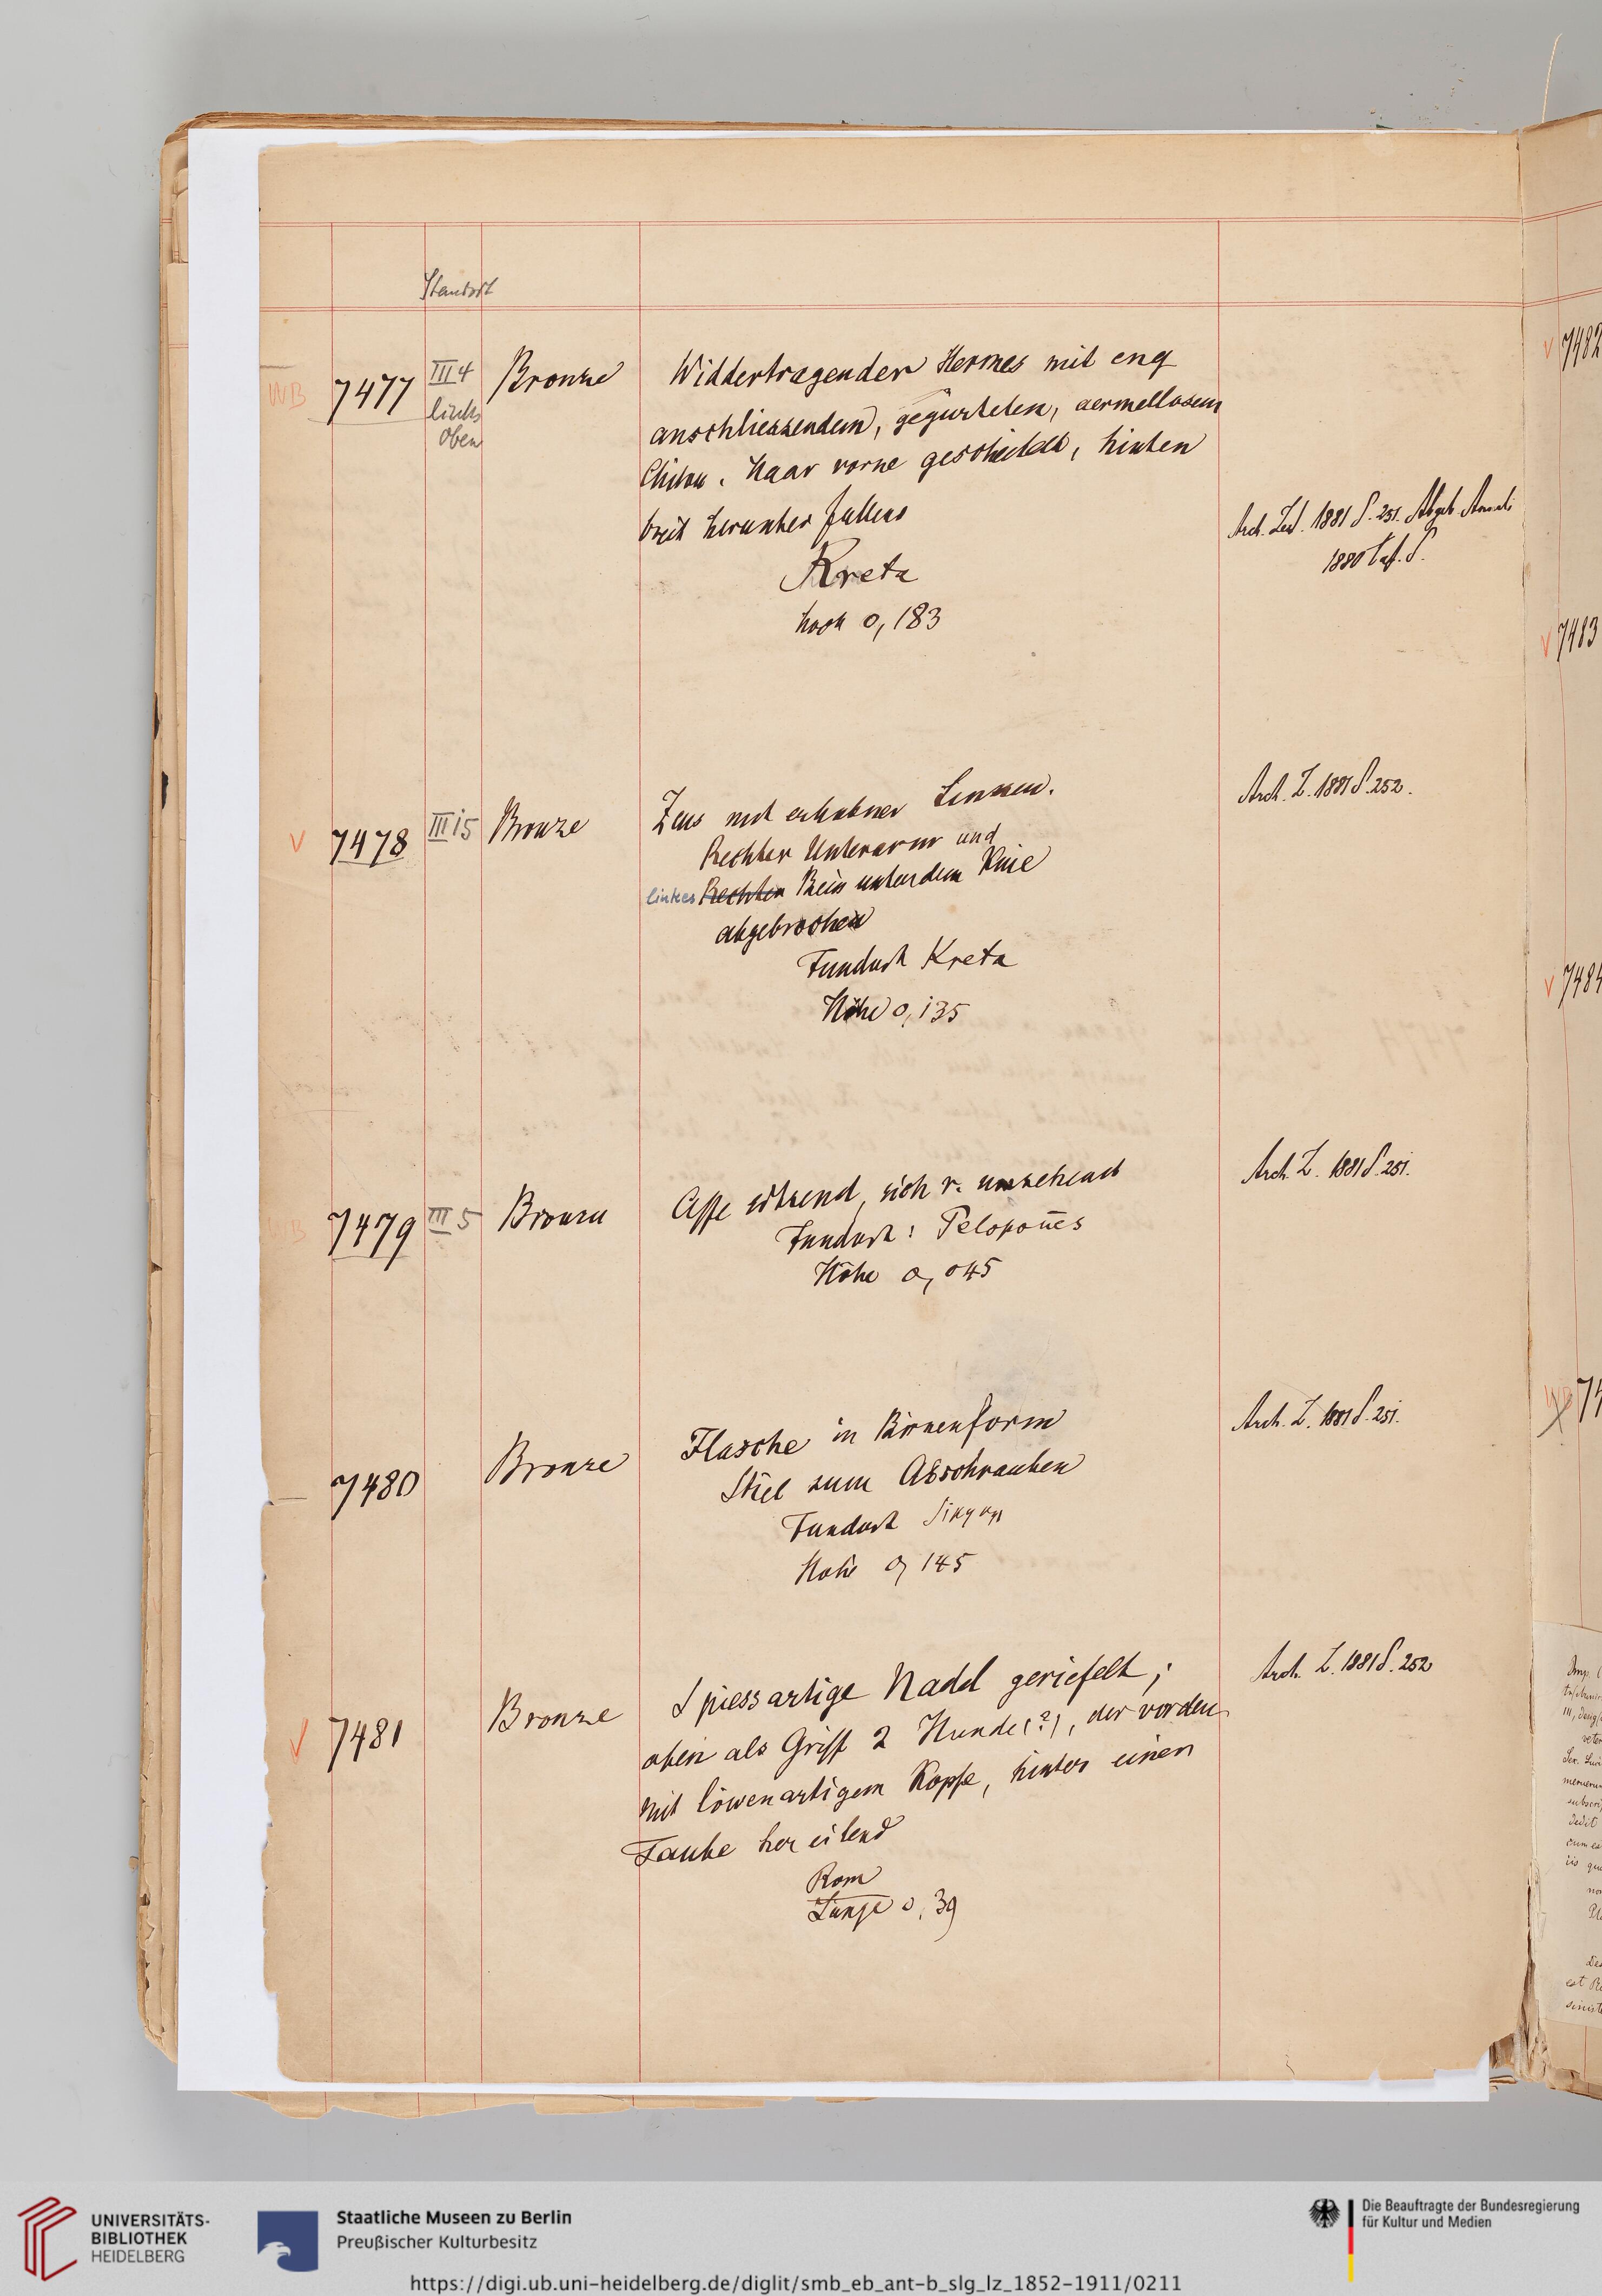 Standort
WB 7477 III 4 links oben Bronze Widdertragender Hermes mit eng
anschliessendem, gegürteten, aermellosem
Chiton. Haar vorne gescheitelt, hinten
breit herunter fallend
Kreta
hoch 0,183
Arch. Zeit. 1881 S. 251. Abgeb. Annali
1880 Taf. S.
V 7478 III i5 Bronze Zeus mit erhobner Linken.
Rechter Unterarm und
linkes Rechter Bein unter dem Knie
abgebrochen
Fundort Kreta
Höhe 0,135
Arch. Z. 1881 S. 252.
B 7479 III 5 Bronze Affe sitzend, sich r. umsehend
Fundort: Peloponn̄es
Höhe 0,045
Arch. Z. 1881 S. 251.
7480 Bronze Flasche in Birnenform
Stiel zum Abschrauben
Fundort Sikyon
Höhe 0,145
Arch. Z. 1881 S. 251.
V 7481 Bronze Spiessartige Nadel geriefelt;
oben als Griff 2 Hunde(?), der vordere
mit löwenartigem Kopfe, hinter einer
Taube her eilend
Rom
Länge 0,39
Arch. Z. 1881 S. 252
V 7482
V 7483
V 7484
UNIVERSITÄTS-
BIBLIOTHEK
HEIDELBERG
Staatliche Museen zu Berlin
Preußischer Kulturbesitz
Die Beauftragte der Bundesregierung
für Kultur und Medien
https://digi.ub.uni-heidelberg.de/diglit/smb_eb_ant-b_slg_lz_1852-1911/0211